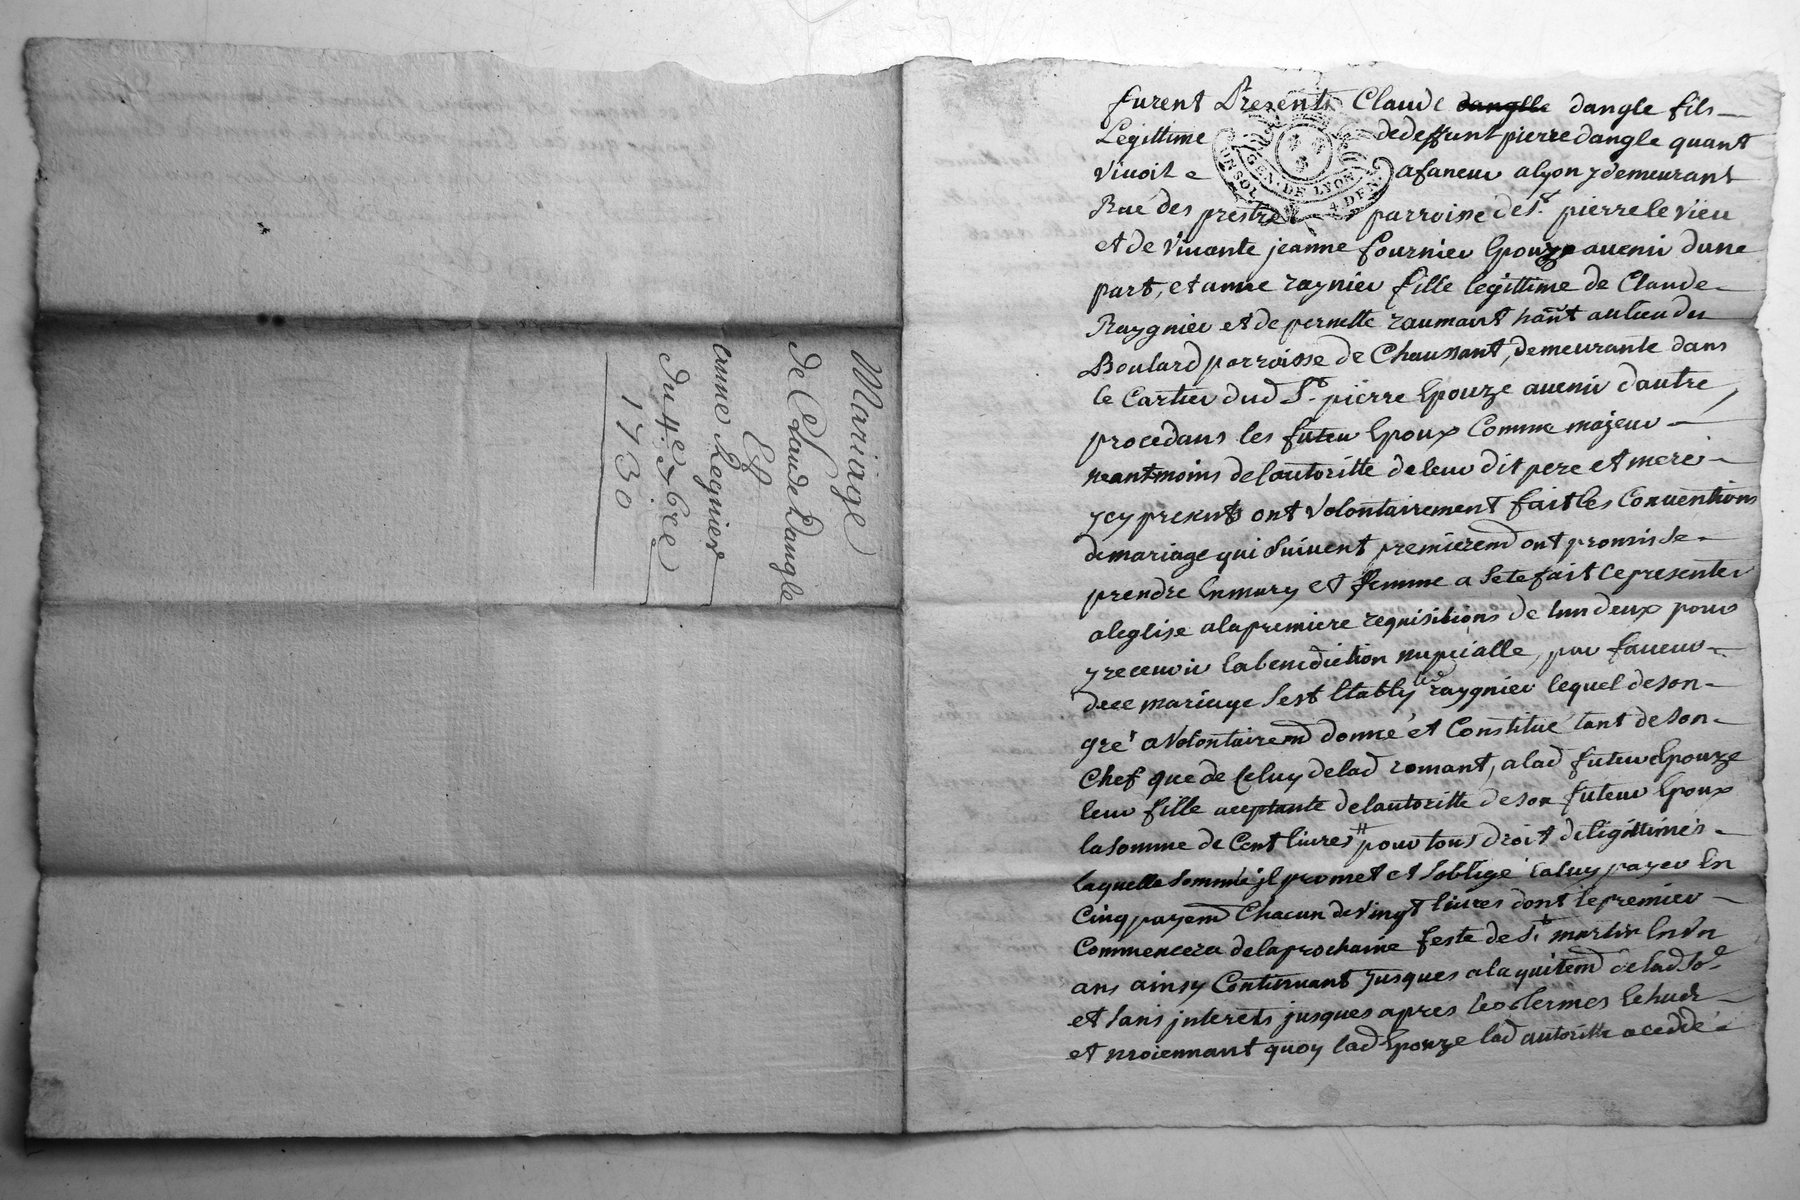 Mariage
de Claude Dangle
Et
anne Regnier
du 4e xbre
1730
furent Presents Claude dangle dangle fils
Legittime dedeffunt pierre dangle quant
vivoit afaneur alyon y demeurant
Rue des prestre parroisse de St. pierre le vieu
et de vivante jeanne fournier Epouze avenir dune
part, et anne raynier fille legittime de Claude
Raygnier et de pernette raumant hant au lieu du
Boulard parroisse de Chaussant, demeurante dans
le Cartier dud St. pierre Epouze avenir dautre
procedans les futeu Epoux Comme majeur
neantmoins de lautoritte de leur dit pere et mere
ycy presents ont volontairement fait les Conventions
de mariage qui suivent premierem ont promis se
prendre En mary et femme a set efait ce presenter
aleglise ala premiere requisitions de lun deux pour
y recevoir la benediction nupcialle, par faveur
dece mariage sest Etably led raygnier lequel de son
gré a volontairem donné et Constitué tant de son
Chef que de Celuy delad romant, alad futeur Epouze
leur fille aceptante de lautoritte de son futeur Epoux
la somme de Cent livres pour tous droit de legittimes
laquelle somme jl promet et soblige la luy payer En
Cinq payem Chacun de vingt livres dont le premier
Commencera de la prochaine feste de St. martin En Vn
ans ainsy Continuant jusques ala quitem de lad so.
et sans jnterets jusques apres les termes Echud
et moiennant quoy lad Epouze lad autoritte a cedde
GEN. DE LYON
UN SOL 4 DEN.